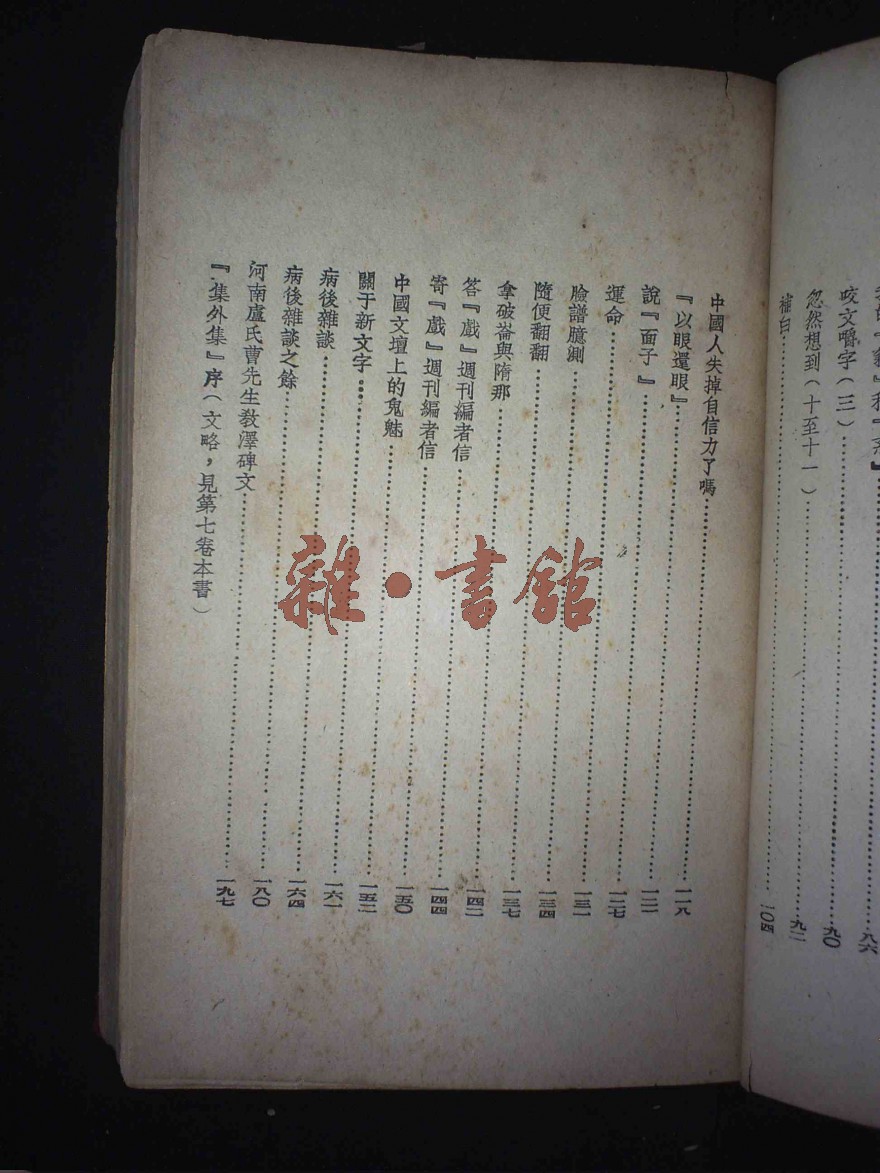 八六
咬文嚼字（三）……九〇
忽然想到（十至十一）……九二
補白……一〇四
中國人失掉自信力了嗎……一一八
『以眼還眼』……一二一
說『面子』……一二七
運命……一三一
臉譜臆測……一三四
隨便翻翻……一三七
拿破崙與隋那……一四二
答『戲』週刊編者信……一四四
寄『戲』週刊編者信……一五〇
中國文壇上的鬼魅……一五二
關于新文字……一六一
病後雜談……一六四
病後雜談之餘……一八〇
河南盧氏曹先生教澤碑文……一九七
『集外集』序（文略，見第七卷本書）
雜·書館